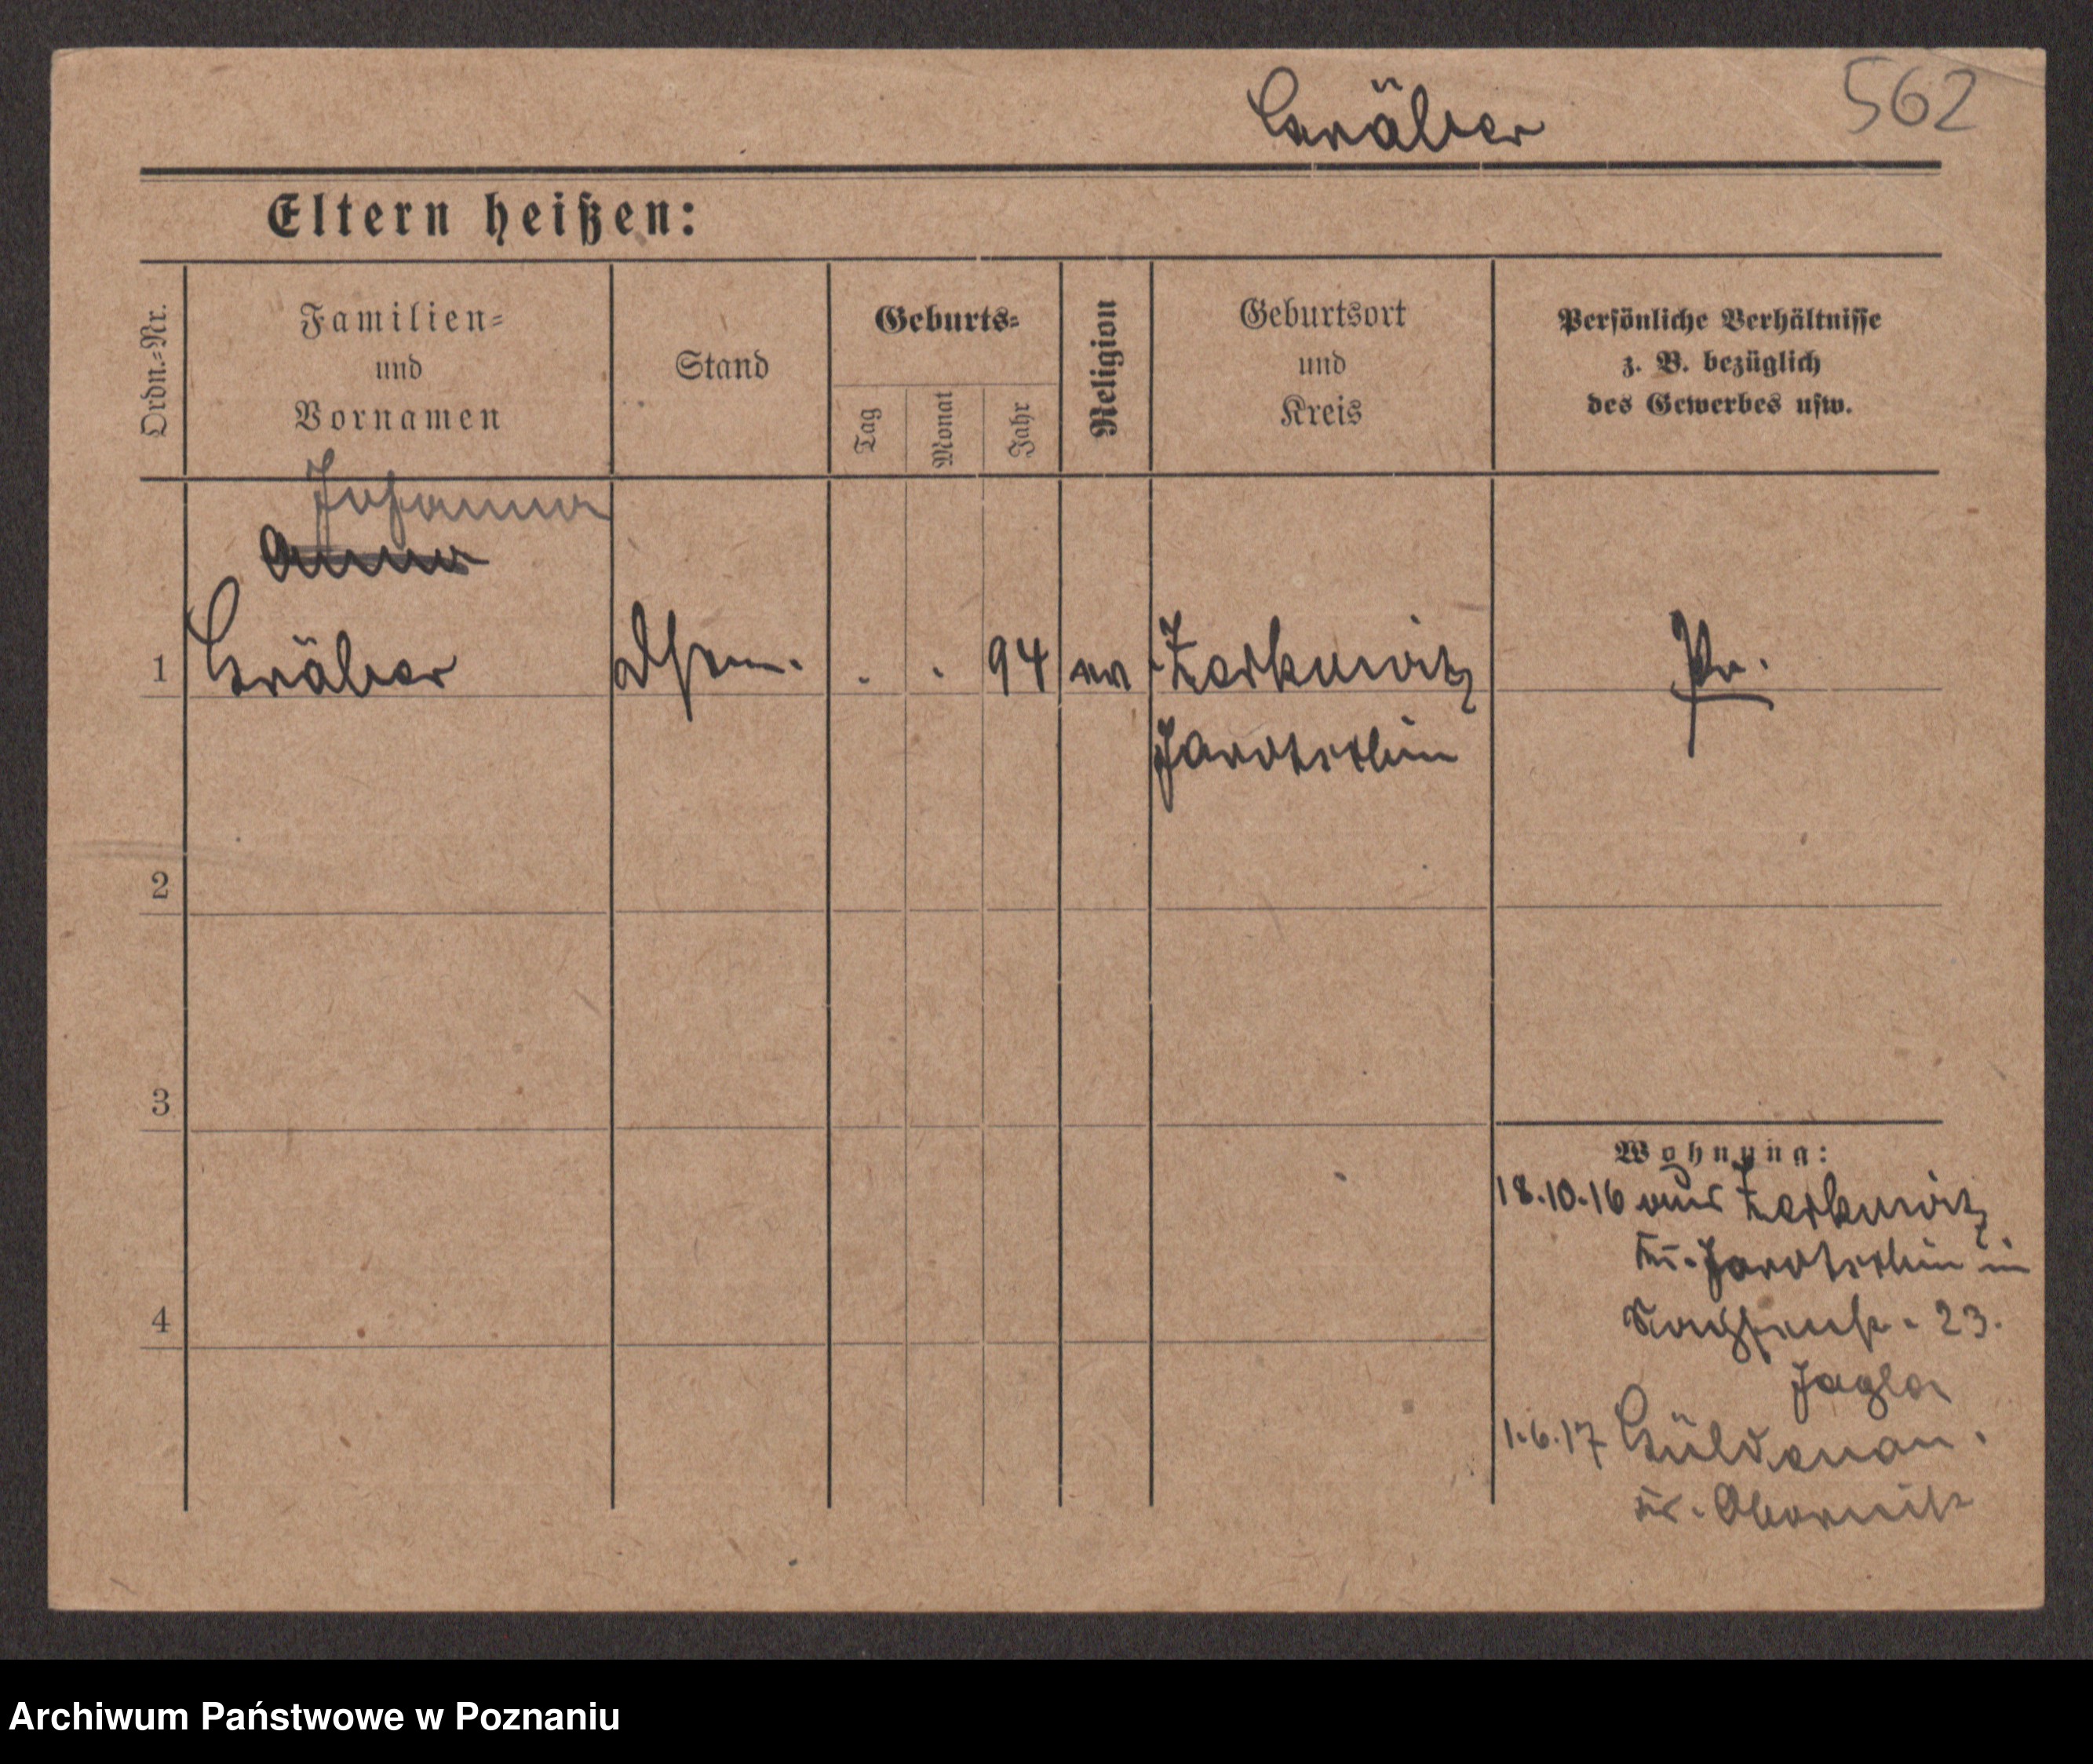 Gräber
562
Eltern heißen:
Ordn.=Nr.
Familien=
und
Vornamen
Stand
Geburts=
Tag
Monat
Jahr
Religion
Geburtsort
und
Kreis
Persönliche Verhältnisse
z. B. bezüglich
des Gewerbes usw.
Johanna
Anna
1 Gräber . . 94 Zerkwitz Pr.
Jarotschin
2
3
4
Wohnung:
18.10.16 aus Zerkwitz
Kr. Jarotschin in
23.
Jagla
1.6.17 Güldenau.
Kr. Obornik
Archiwum Państwowe w Poznaniu